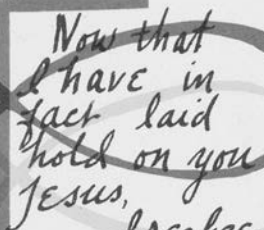 Now that
I have in
fact laid
hold on you
Jesus,